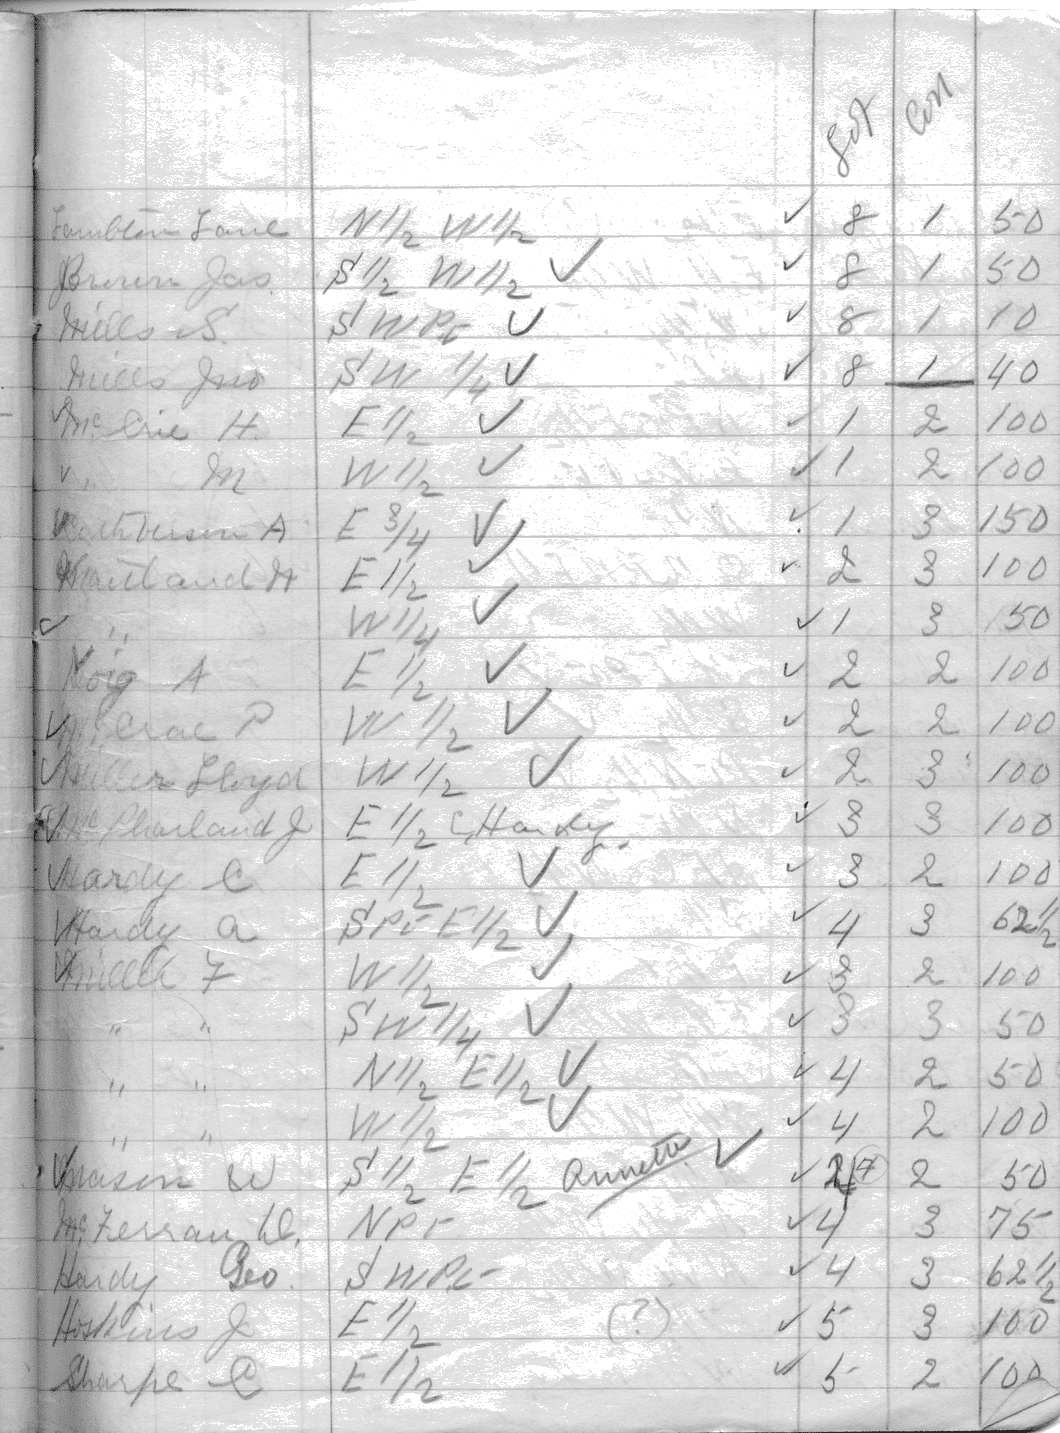 Lot Con
Lambton Lane N 1/2 W 1/2 ✓ 8 1 50
Brown Jas. S 1/2 W 1/2 ✓ ✓ 8 1 50
Mills S. S W Pt ✓ ✓ 8 1 10
Mills Jno S W 1/4 ✓ ✓ 8 1 40
✓ Mc H. E 1/2 ✓ ✓ 1 2 100
✓ " M W 1/2 ✓ ✓ 1 2 100
A E 3/4 ✓ ✓ 1 3 150
Maitland H E 1/2 ✓ ✓ 2 3 100
✓ " W 1/4 ✓ ✓ 1 3 50
A E 1/2 ✓ ✓ 2 2 100
✓ McCrae P W 1/2 ✓ ✓ 2 2 100
✓ Miller Lloyd W 1/2 ✓ ✓ 2 3 100
✓ J E 1/2 C, Hardy. ✓ 3 3 100
✓ Hardy C E 1/2 ✓ ✓ 3 2 100
✓ Hardy A S Pt E 1/2 ✓ ✓ 4 3 62 1/2
✓ F W 1/2 ✓ ✓ 3 2 100
" " S W 1/4 ✓ ✓ 3 3 50
" " N 1/2 E 1/2 ✓ ✓ 4 2 50
" " W 1/2 ✓ ✓ 4 2 100
✓ Mason W S 1/2 E 1/2 Annett ✓ ✓ 4 2 50
McFerran W. N Pt ✓ 4 3 75
Hardy Geo. S W Pt ✓ 4 3 62 1/2
Hoskins J E 1/2 (?) ✓ 5 3 100
Sharpe C E 1/2 ✓ 5 2 100